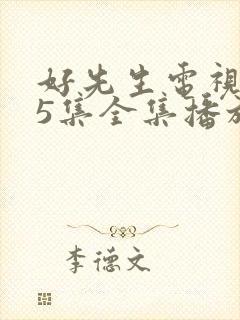 好先生電視
5集全集播放
李德文